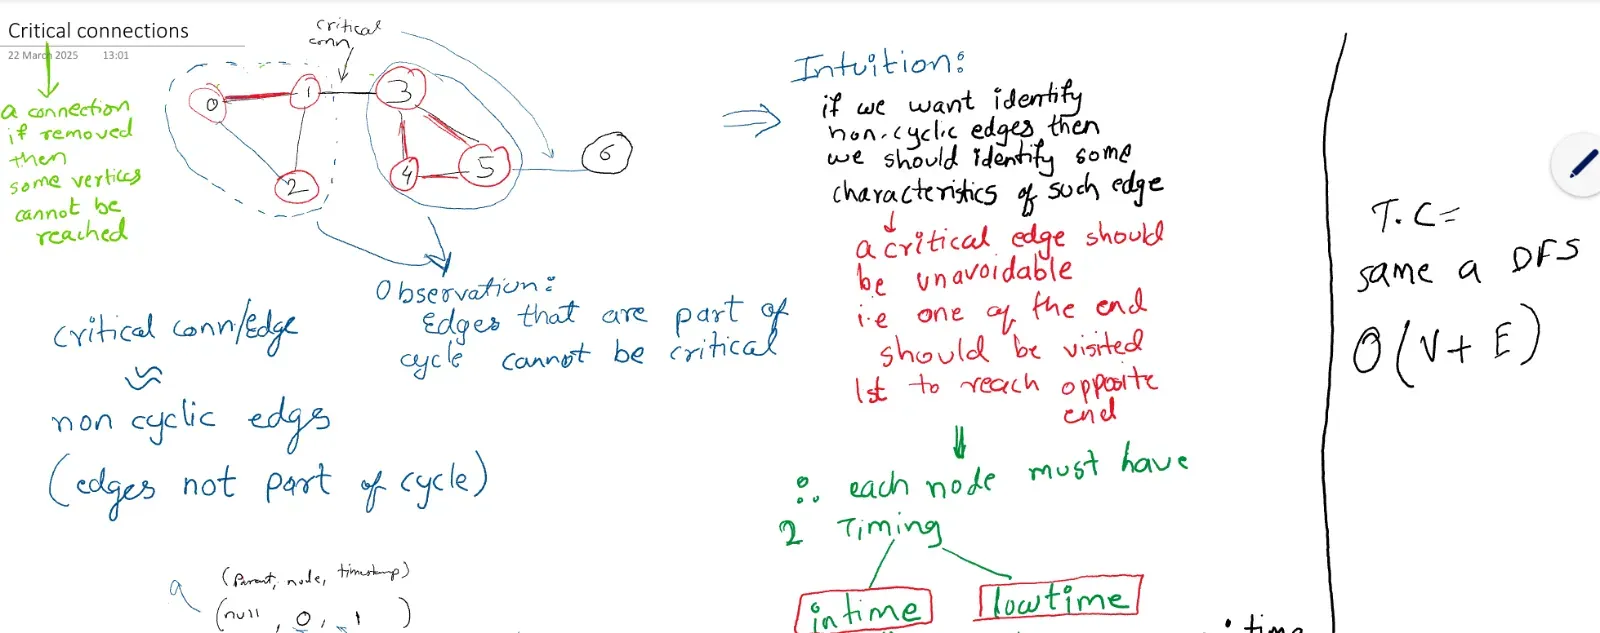 Critical connections
22 March 2025 13:01
a connection
if removed
then
some vertices
cannot be
reached
critical
conn
0
1
2
3
4
5
6
Observation:
Edges that are part of
cycle cannot be critical
critical conn/Edge
non cyclic edges
(edges not part of cycle)
(Parent, node, timestamp)
(null, 0, 1)
Intuition:
if we want identify
non-cyclic edges then
we should identify some
characteristics of such edge
a critical edge should
be unavoidable
i.e one of the end
should be visited
1st to reach opposite
end
∴ each node must have
2 Timing
intime
lowtime
T.C =
same a DFS
O(V+E)
: time